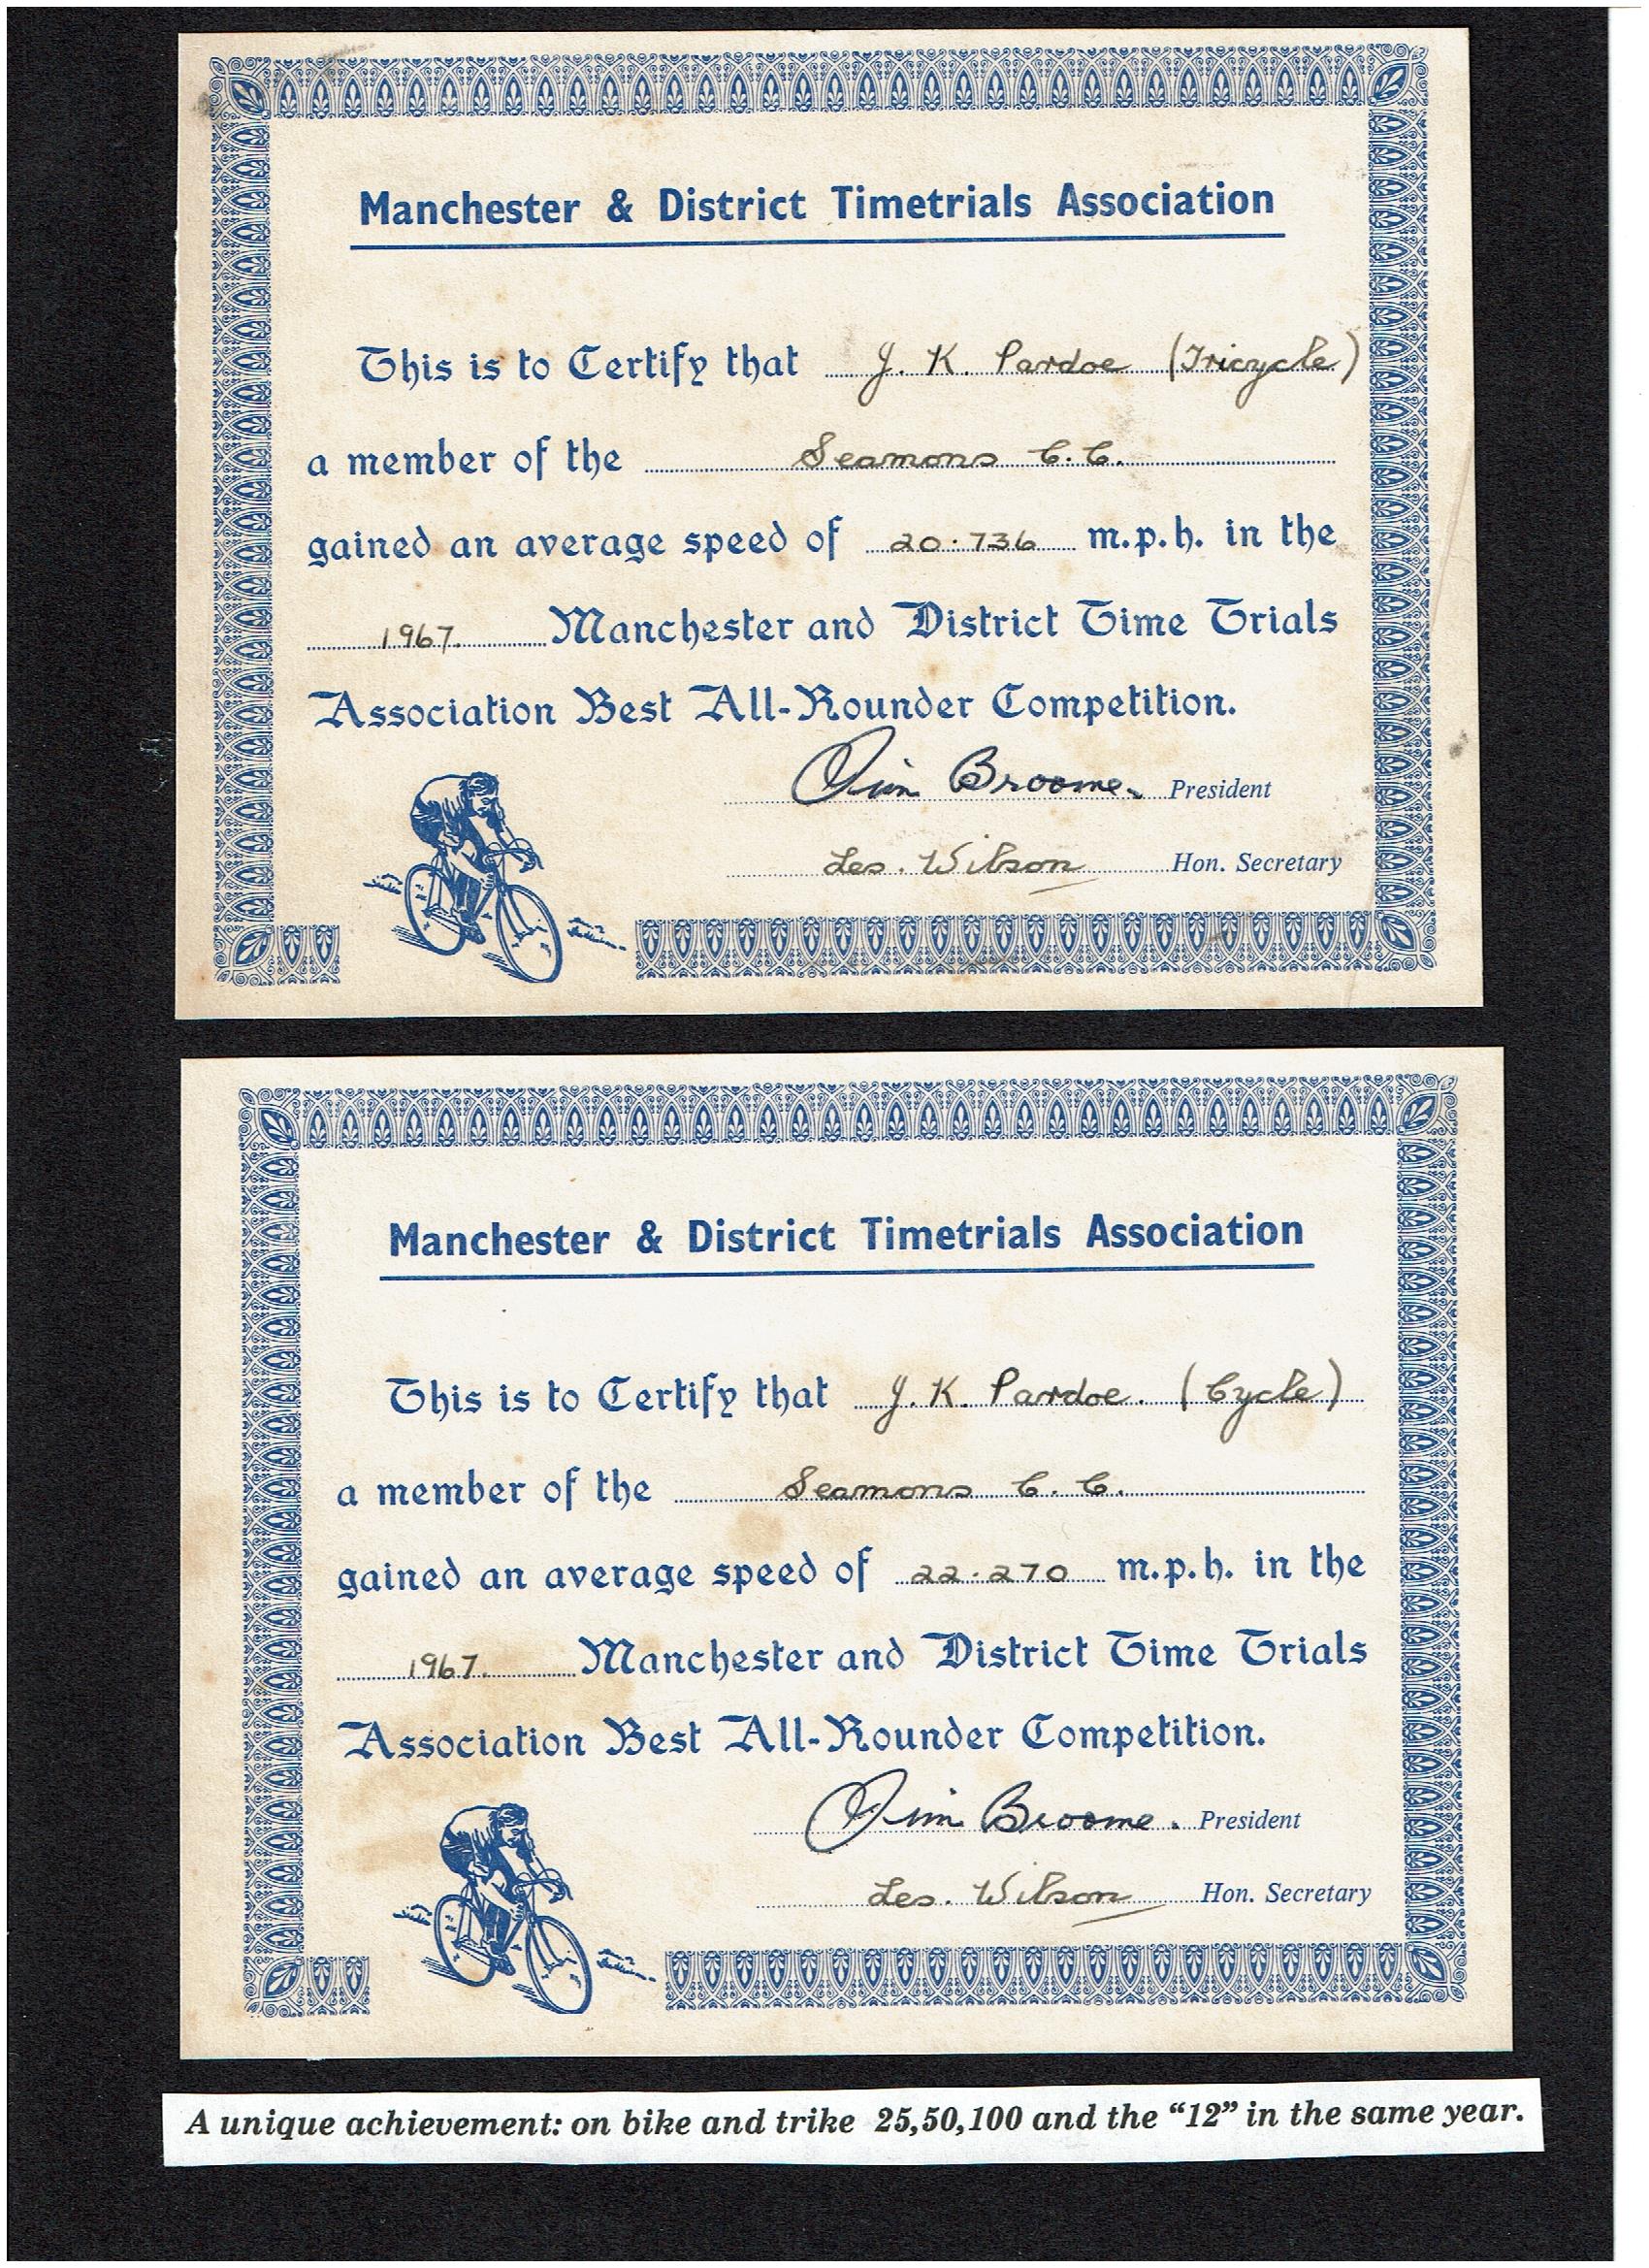 Manchester & District Timetrials Association
This is to Certify that J. K. Pardoe (Tricycle)
a member of the Seamons C.C.
gained an average speed of 20.736 m.p.h. in the
1967. Manchester and District Time Trials
Association Best All-Rounder Competition.
Jim Broome. President
Les. Wilson Hon. Secretary
Manchester & District Timetrials Association
This is to Certify that J. K. Pardoe. (Cycle)
a member of the Seamons C. C.
gained an average speed of 22.270 m.p.h. in the
1967. Manchester and District Time Trials
Association Best All-Rounder Competition.
Jim Broome. President
Les. Wilson Hon. Secretary
A unique achievement: on bike and trike 25,50,100 and the “12” in the same year.